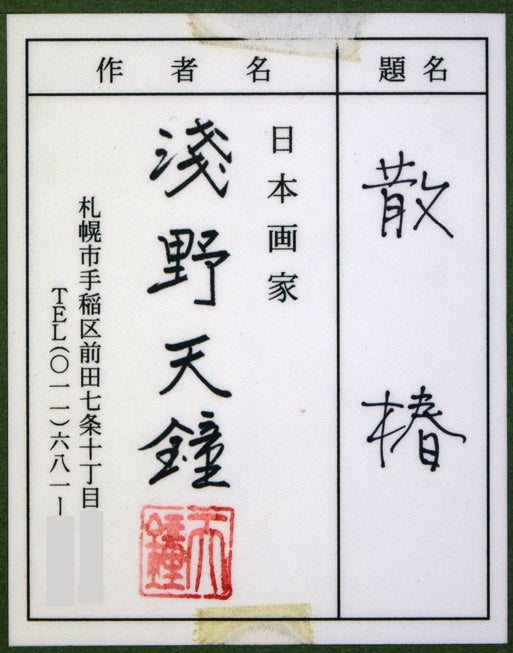 題名
散椿
作者名
日本画家
淺野天鐘
天鐘
札幌市手稲区前田七条十丁目
TEL(〇一一)六八一ー